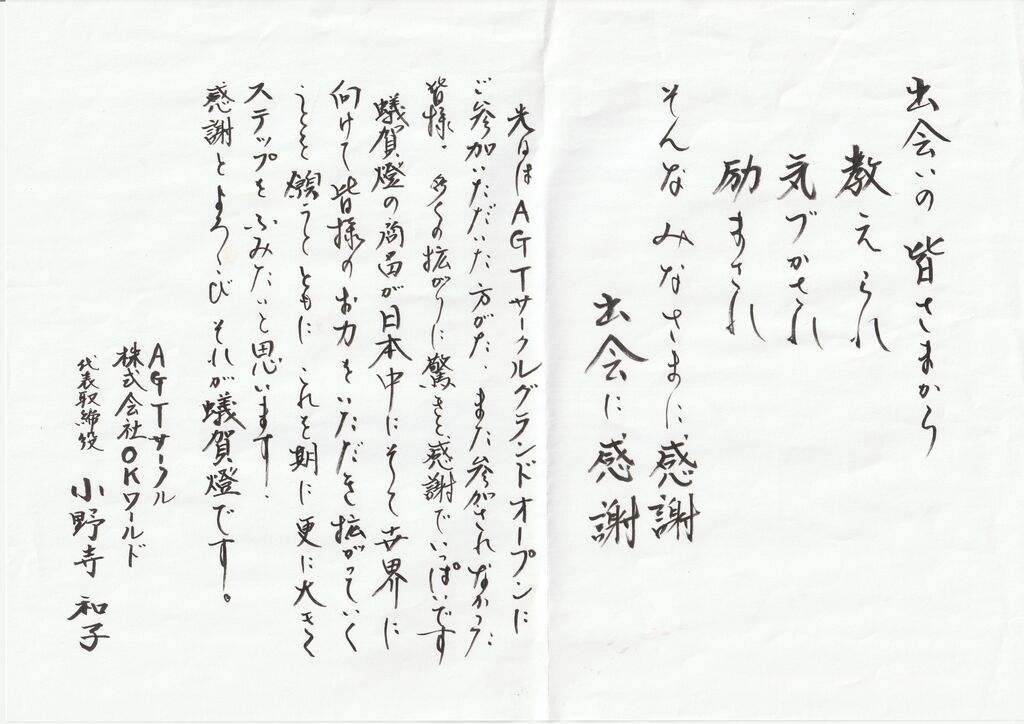 出会いの皆さまから
教えられ
気づかされ
励まされ
そんなみなさまに感謝
出会に感謝
先日はAGTサークルグランドオープンに
ご参加いただいた方がた、また参加されなかった
皆様、多くの拡がりに驚きと感謝でいっぱいです
蟻賀燈の商品が日本中にそして世界に
向けて皆様のお力をいただき拡がっていく
ことを願うとともにこれを期に更に大きく
ステップをふみたいと思います。
感謝とよろこびそれが蟻賀燈です。
AGTサークル
株式会社OKワールド
代表取締役 小野寺和子